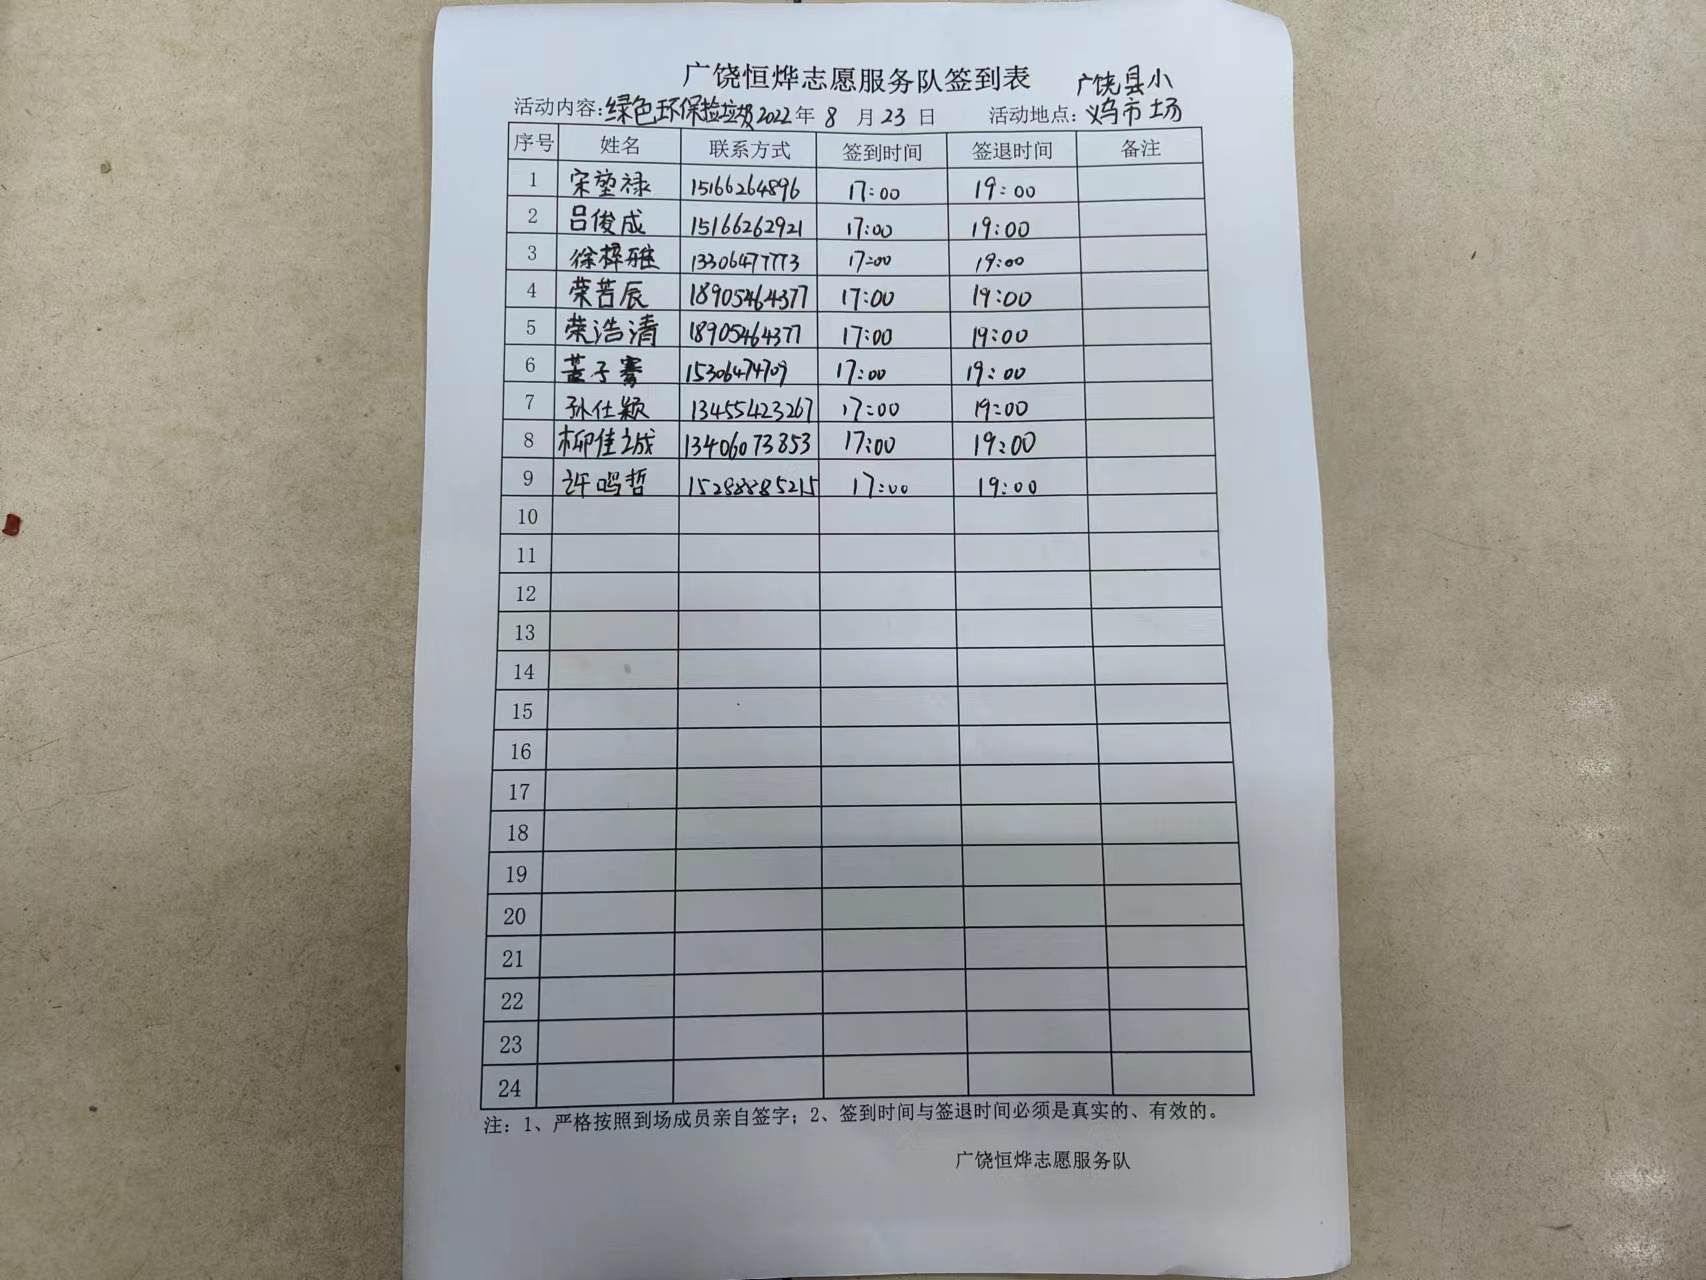 广饶恒烨志愿服务队签到表
广饶县小
活动内容:绿色环保捡垃圾2022年 8 月 23 日 活动地点:义乌市场
序号 姓名 联系方式 签到时间 签退时间 备注
1 宋堃禄 15166264896 17:00 19:00
2 吕俊成 15166262921 17:00 19:00
3 徐梓雅 13306477773 17:00 19:00
4 荣苦辰 18905464377 17:00 19:00
5 荣浩清 18905464377 17:00 19:00
6 董子骞 15306474709 17:00 19:00
7 孙仕颖 13455423267 17:00 19:00
8 柳佳诚 13406073853 17:00 19:00
9 许鸣哲 15288885215 17:00 19:00
10
11
12
13
14
15
16
17
18
19
20
21
22
23
24
注：1、严格按照到场成员亲自签字；2、签到时间与签退时间必须是真实的、有效的。
广饶恒烨志愿服务队